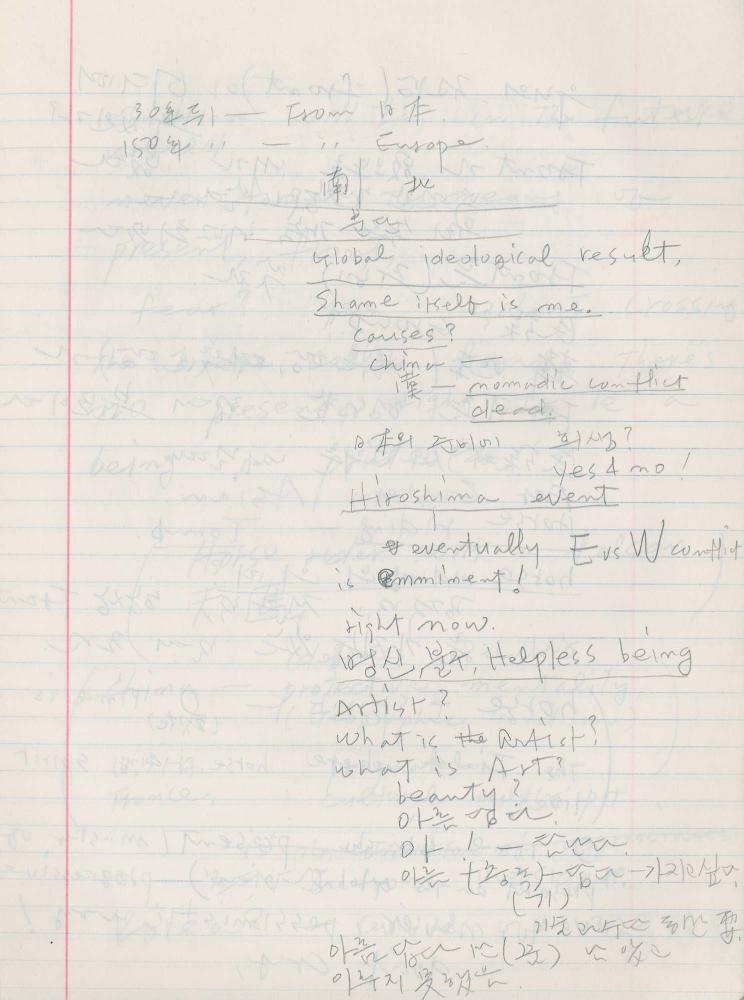 30年 뒤 — From 日本.
150年 〃 — 〃 Europe.
南 北
분단
Global ideological result,
Shame itself is me.
Causes?
China —
漢 — nomadic conflict
dead.
日本의 준비에 희생?
yes & no!
Hiroshima event
eventually E vs W conflict
is emminent!
right now.
망신, 불구, Helpless being
Artist?
What is the Artist?
What is Art?
beauty?
아름답다.
아! — 한난다.
아름 (충족)—답다—가지고싶다.
(기)
아름답다는 (꿈)
이루지 못했